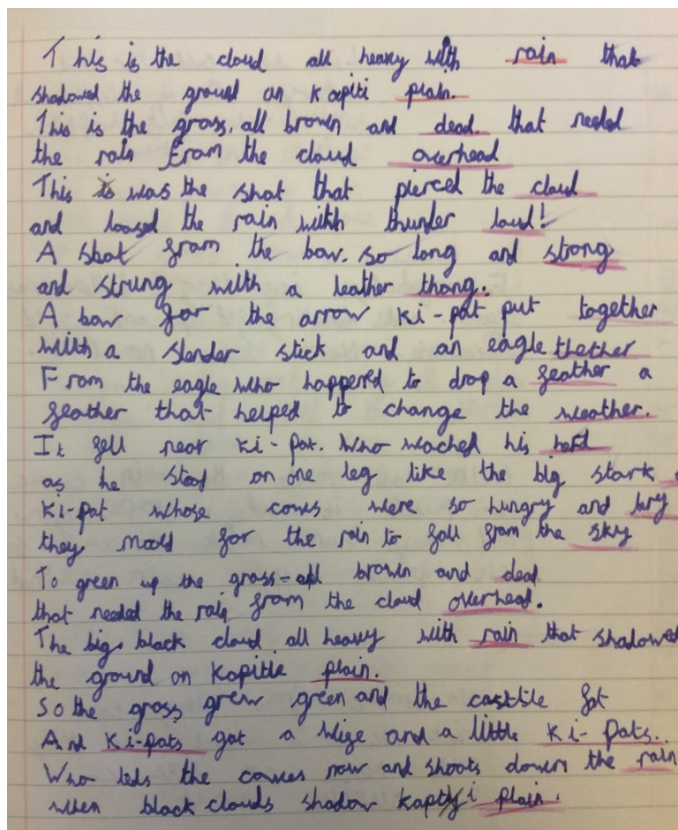 This is the cloud all heavy with rain that
shadowed the ground on kapiti plain.
This is the grass, all brown and dead that needed
the rain from the cloud overhead
This is was the shot that pierced the cloud
and loosed the rain with thunder loud!
A shot from the bow. so long and strong
and strung with a leather thong.
A bow for the arrow ki-pat put together
with a slender stick and an eagle thether
From the eagle who happened to drop a feather a
feather that helped to change the weather.
It fell near ki-pat. Who wached his herd
as he stood on one leg like the big stork
Ki-pat whose cows were so hungry and
they mooed for the rain to fall from the sky
To green up the grass - all brown and dead
that needed the rain from the cloud overhead.
The big black cloud all heavy with rain that shadowed
the ground on Kapitle plain.
So the grass grew green and the casttle fat
And Ki-pats got a wige and a little Ki-Pats.
Who leds the cowes now and shoots down the rain
when black clouds shadow plain.